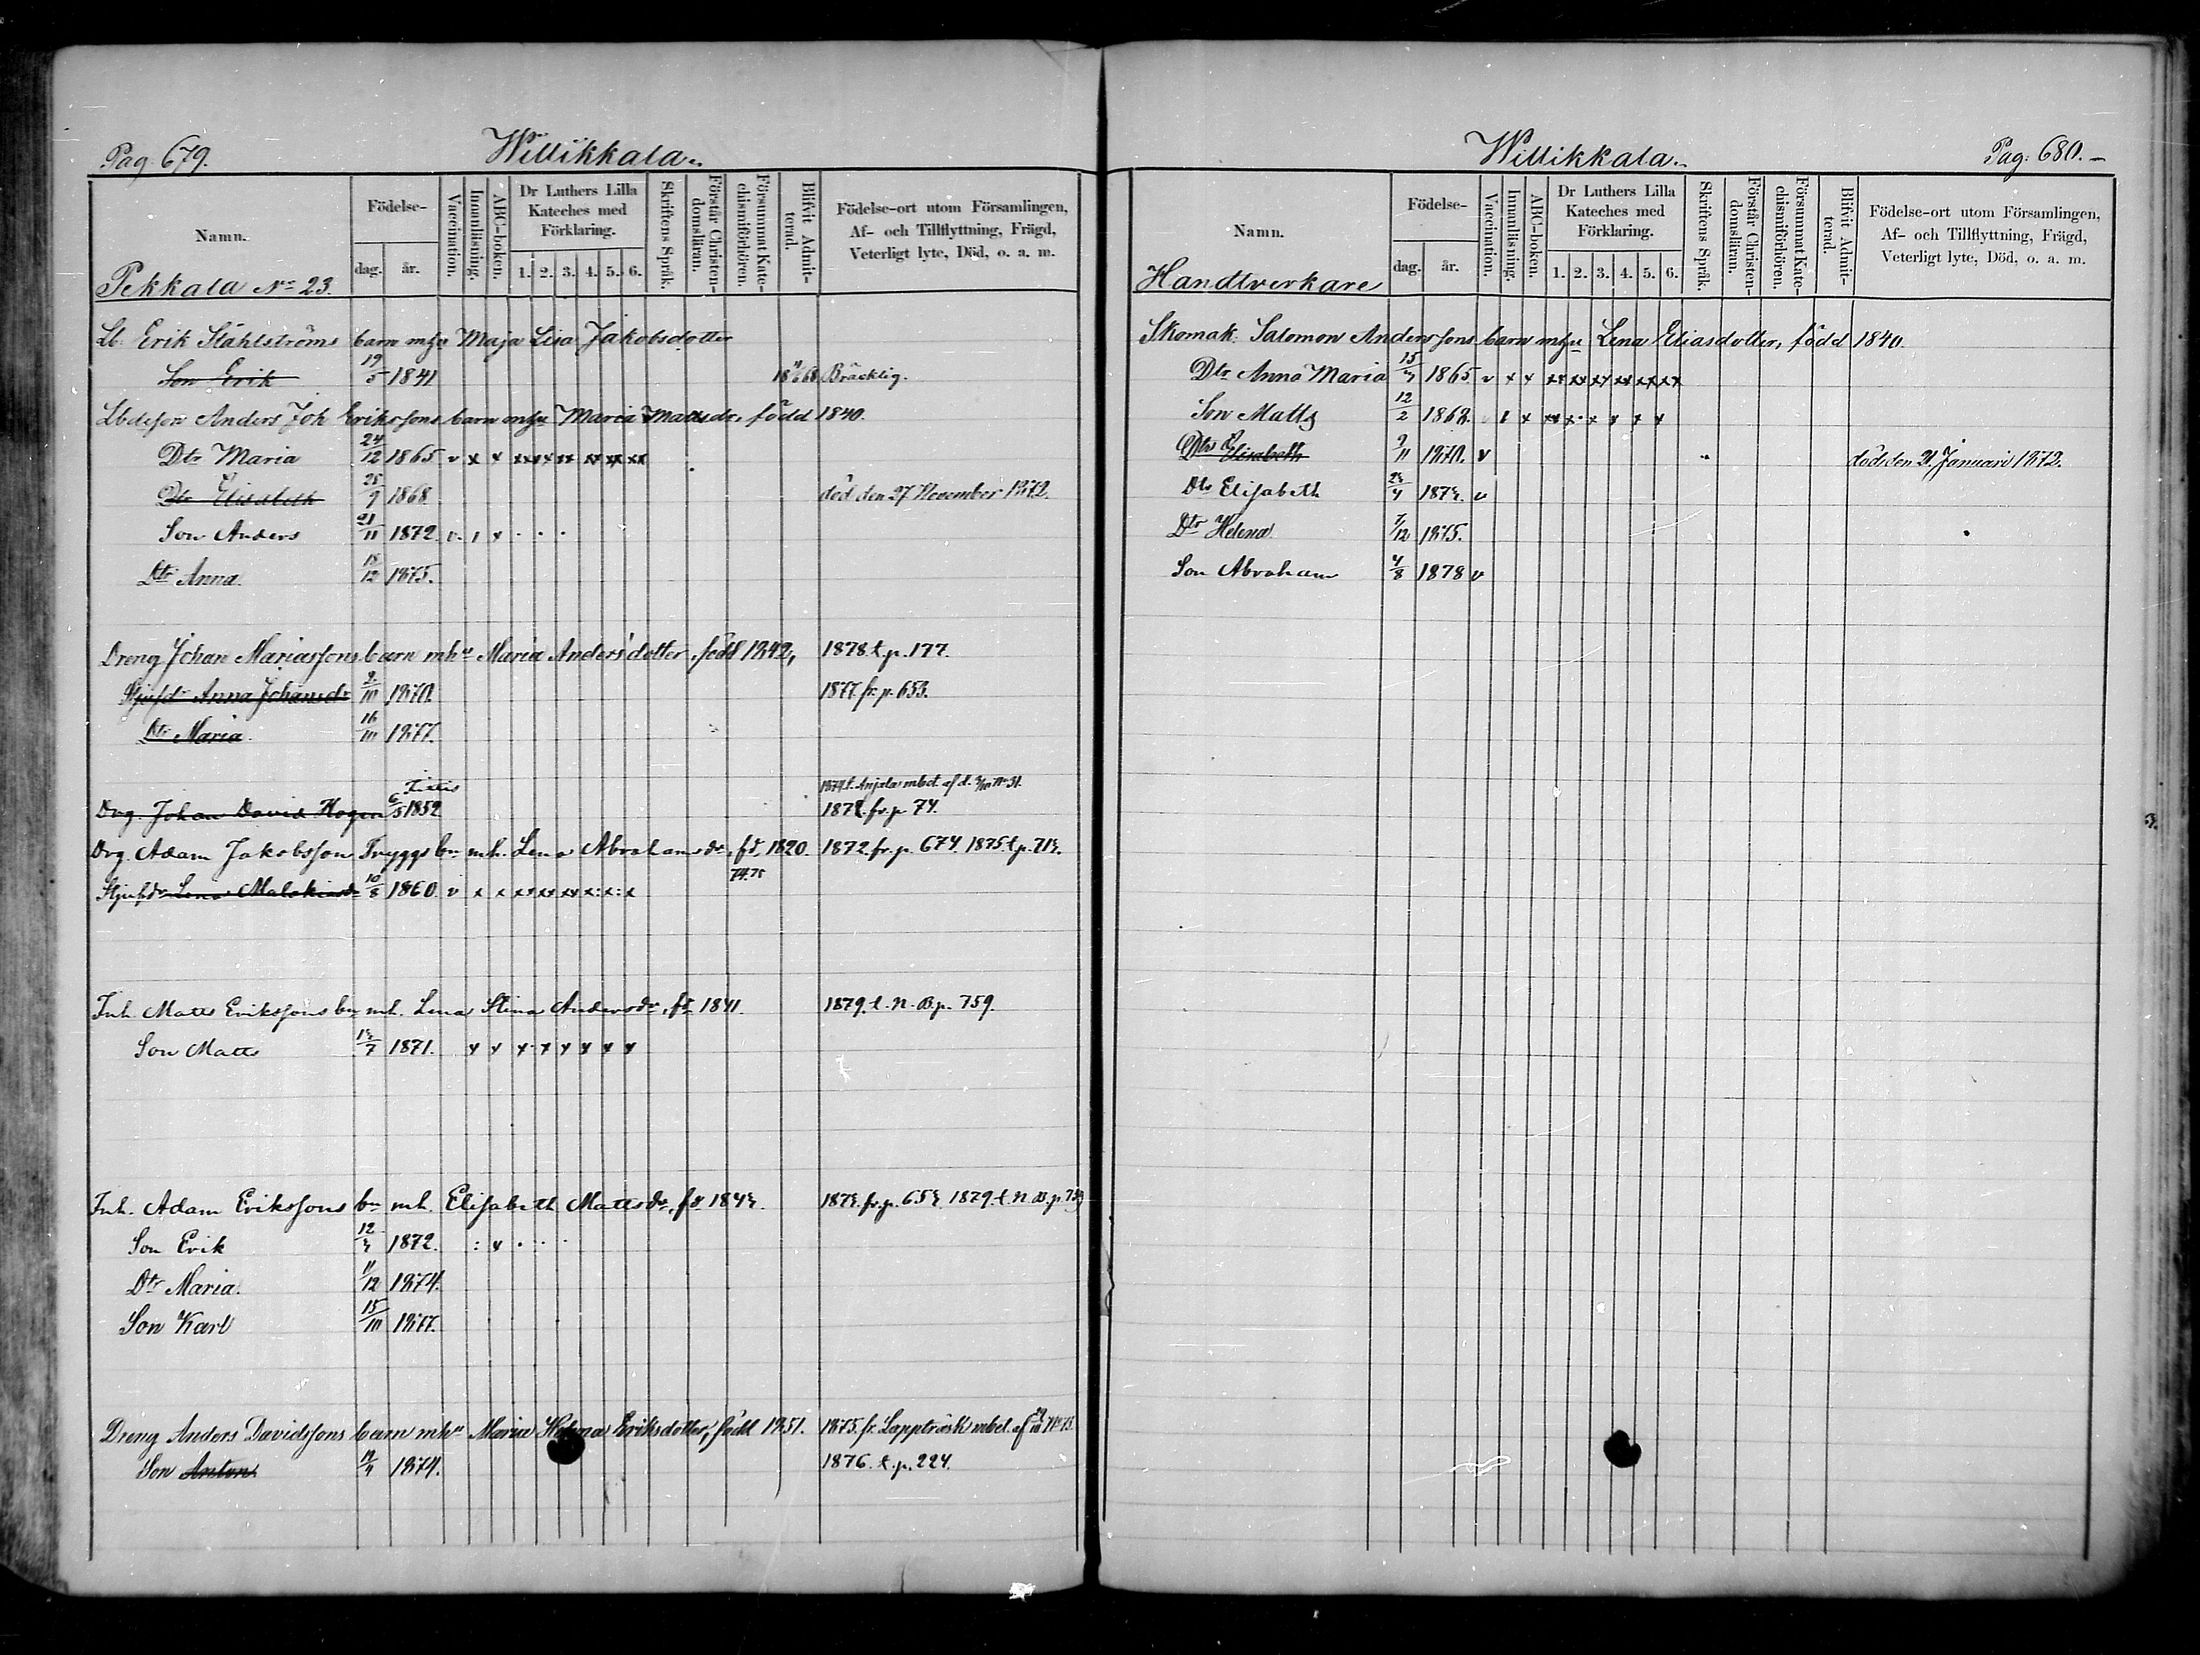 Pag. 679. Willikkala.
Namn. Födelse- Vaccination. Innanläsning. ABC-boken. Dr Luthers Lilla Kateches med Förklaring. Skriftens Språk. Förstår Christendomsläran. Försummat Katechismiförhören. Blifvit Admitterad. Födelse-ort utom Församlingen, Af- och Tillflyttning, Frägd, Veterligt lyte, Död, o. a. m.
dag. år. 1. 2. 3. 4. 5. 6.
Pekkala No 23.
Lb. Erik Ståhlströms barn mhu Maja Lisa Jakobsdotter
Son Erik 19/5 1841 Bräcklig.
Anders Joh Erikssons barn mhu Maria Mattsdr, född 1840.
Dtr Maria 24/12 1865 v x x xx xx xx xx xx xx
Dtr Elisabeth 25/9 1868. död den 27 November 1872.
Son Anders 21/11 1872. v. 1 x . . .
Dtr Anna. 18/12 1875.
Dreng Johan Mariassons barn mhu Maria Andersdotter, född 1842, 1878 t. p. 177.
Stjufdr Anna Johansdr 2/10 1870. 1877. fr. p. 653.
Dtr Maria. 16/10 1877.
1874 t. Anjala mbet. af d. No 31.
Drg. Johan David Hogen 6/5 1852 1872. fr. p 74.
Drg. Adam Jakobsson Tryggs bn mh. Lena Abrahamsdr, fd 1820. 1872. fr. p. 674. 1875 t. p. 713.
74.75
Stjufdr Lena Malakiasdr 10/8 1860. v x x xx xx xx x: x: x
Inh. Matts Erikssons bn mh. Lena Stina Andersdr, fd 1841. 1879. t. N. B. p. 759.
Son Matts 13/7 1871. x x x x x x x x
Inh. Adam Erikssons bn mh. Elisabeth Mattsdr, fd 1843. 1873. fr. p. 653 1879. t. N. B. p. 759
Son Erik 12/3 1872. : x . . .
Dtr Maria. 11/12 1874.
Son Karl 15/10 1877.
Dreng Anders Davidssons barn mhu Maria Helena Eriksdotter, född 1851. 1875. fr. Lappträsk mbet. af No 75.
Son Anton 1874. 1876. t. p. 224.
Willikkala. Pag. 680.
Namn. Födelse- Vaccination. Innanläsning. ABC-boken. Dr Luthers Lilla Kateches med Förklaring. Skriftens Språk. Förstår Christendomsläran. Försummat Katechismiförhören. Blifvit Admitterad. Födelse-ort utom Församlingen, Af- och Tillflyttning, Frägd, Veterligt lyte, Död, o. a. m.
dag. år. 1. 2. 3. 4. 5. 6.
Handtverkare
Skomak. Salomon Anderssons barn mhu Lena Eliasdotter, född 1840.
Dtr Anna Maria 15/3 1865. v x x xx xx xx xx xx xx
Son Matts 12/2 1868. v 1 x xx x. x x x x
Dtr Elisabeth 9/11 1870. v död den 21 Januari 1872.
Dtr Elisabeth 23/4 1873. v
Dtr Helena 7/12 1875.
Son Abraham 4/8 1878 v